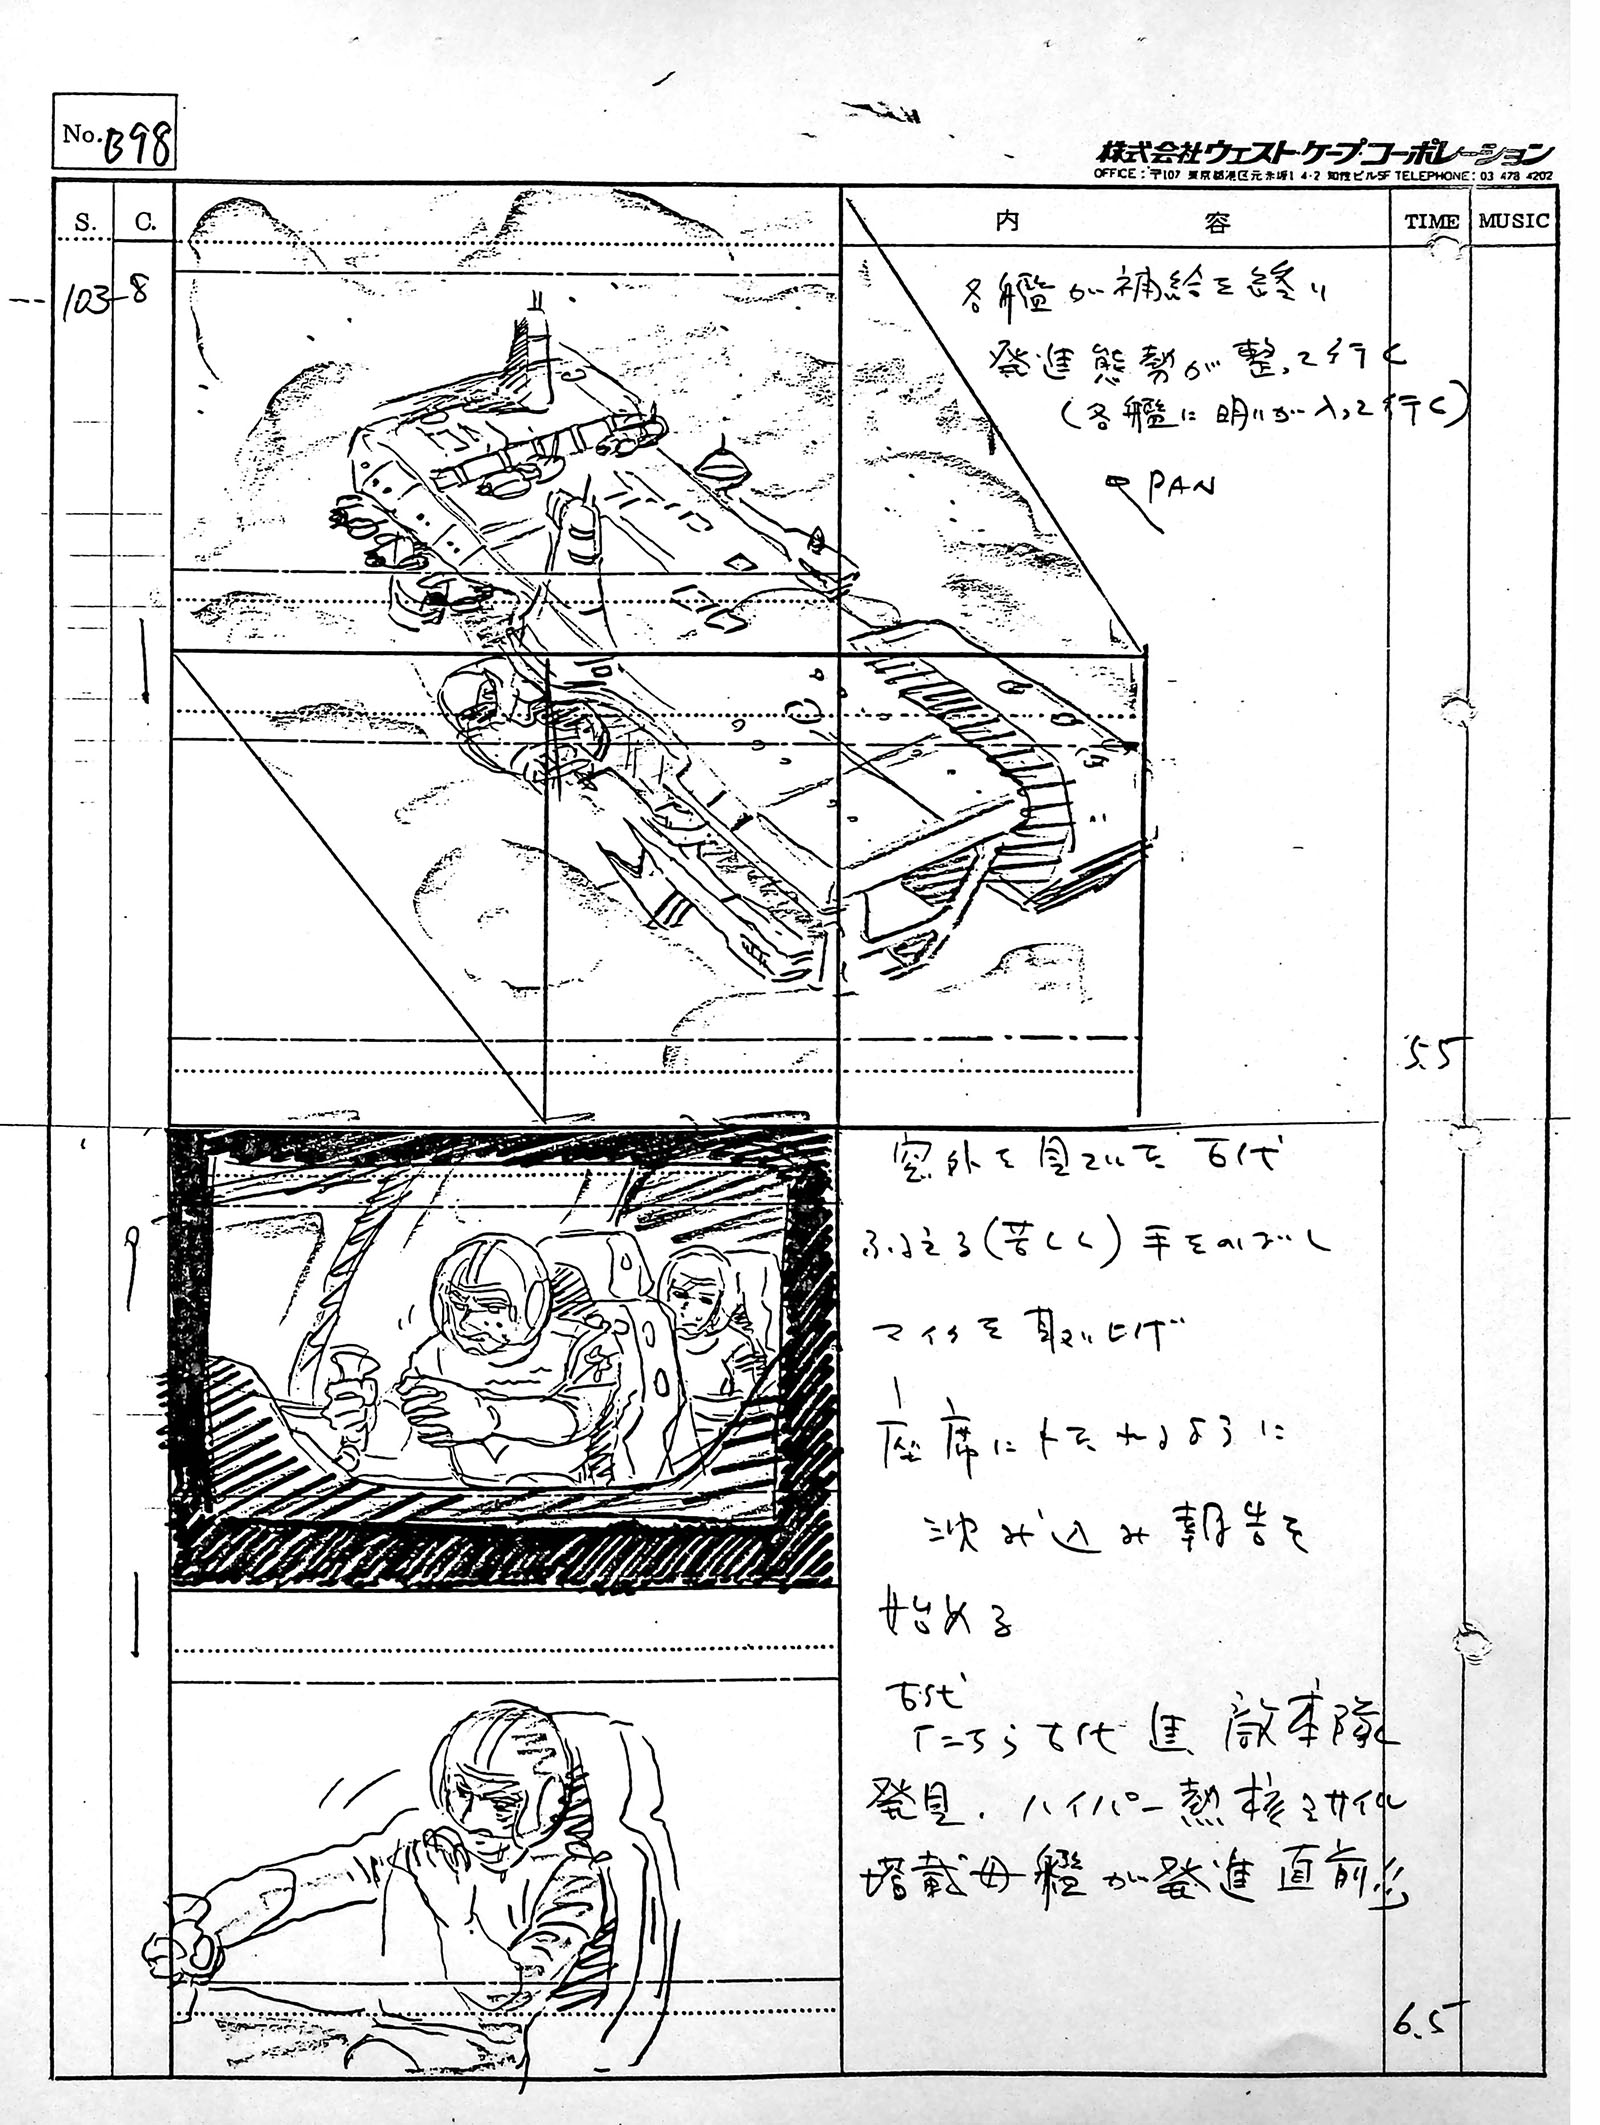 No. B98
株式会社ウェスト・ケープ・コーポレーション
OFFICE : 〒107 東京都港区元赤坂1 4-2 知性ビル5F TELEPHONE : 03 478 4202
S. C. 内 容 TIME MUSIC
103-8
各艦が補給を終り
発進態勢が整って行く
(各艦に明りが入って行く)
PAN
5.5
9
窓外を見ていた古代
ふるえる(苦しく)手をのばし
マイクを取り上げ
座席にたれるように
沈み込み報告を
始める
古代
「こちら古代進 敵本隊
発見. ハイパー熱核ミサイル
搭載母艦が発進直前
6.5